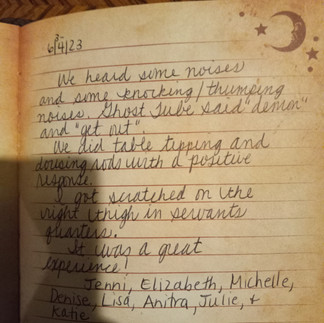 6/4/23
We heard some noises
and some knocking/thumping
noises. Ghost Tube said "demon"
and "get out".
We did table tipping and
dowsing rods with a positive
response.
I got scratched on the
right thigh in servants
quarters.
It was a great
experience!
Jenni, Elizabeth, Michelle,
Denise, Lisa, Anitra, Julie, &
Katie